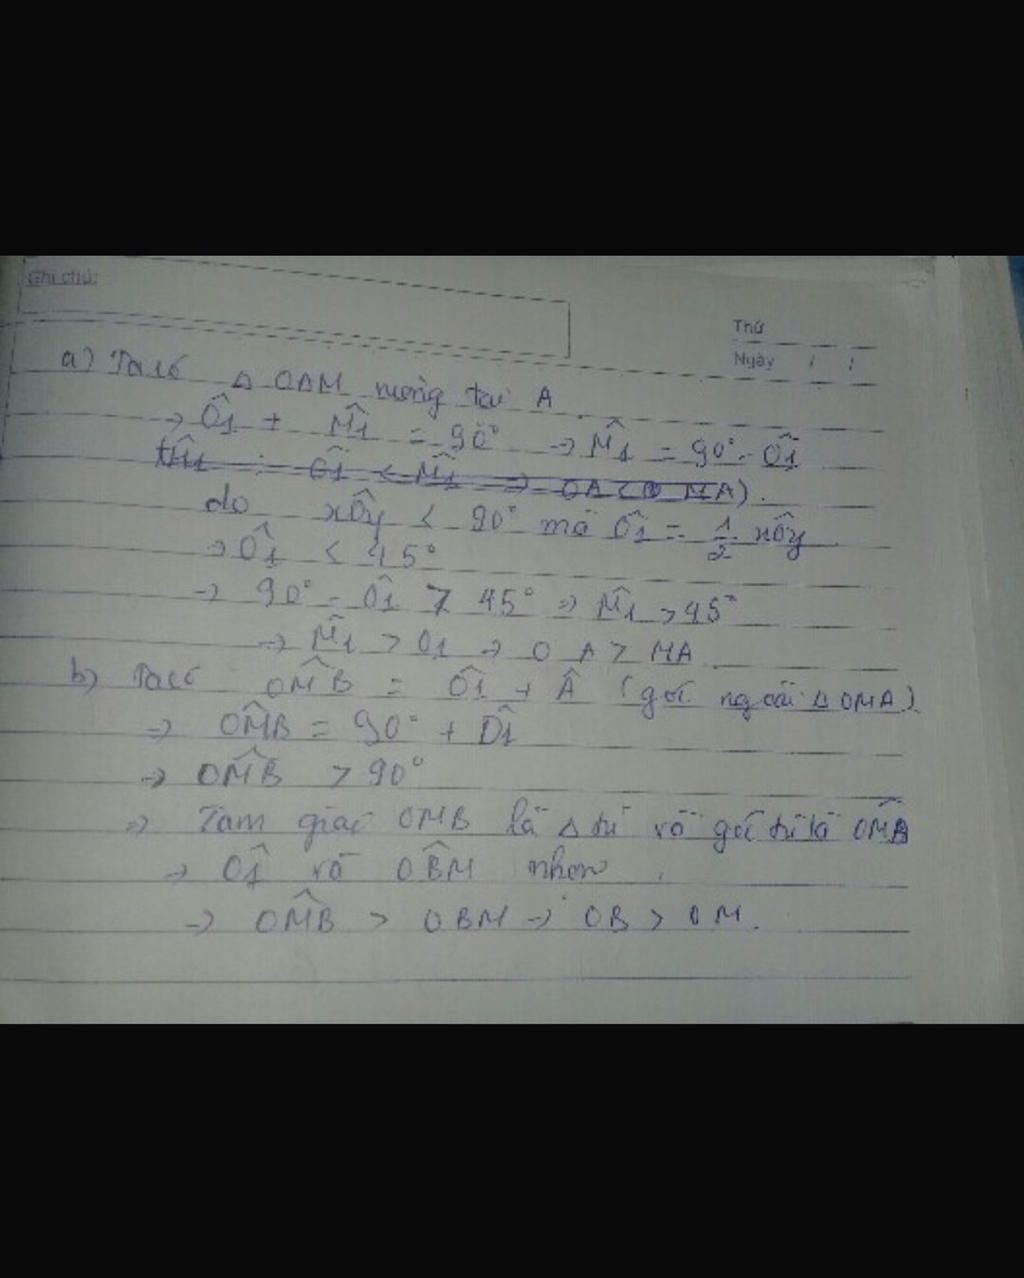 Ghi chú:
Thứ
Ngày / /
a) Ta có Δ OAM vuông tại A
→ Ô1 + M̂1 = 90° → M̂1 = 90° - Ô1
TH1 : Ô1 < M̂1 => OA ( MA).
do xÔy < 90° mà Ô1 = 1/2 xÔy
→ Ô1 < 45°
→ 90° - Ô1 > 45° => M̂1 > 45°
→ M̂1 > O1 → OA > MA
b) Ta có OM̂B = Ô1 + Â (góc ngoài Δ OMA)
=> OM̂B = 90° + Ô1
→ OM̂B > 90°
=> Tam giác OMB là Δ tù và góc tù là OM̂B
→ Ô1 và OB̂M nhọn
→ OM̂B > OBM → OB > OM.